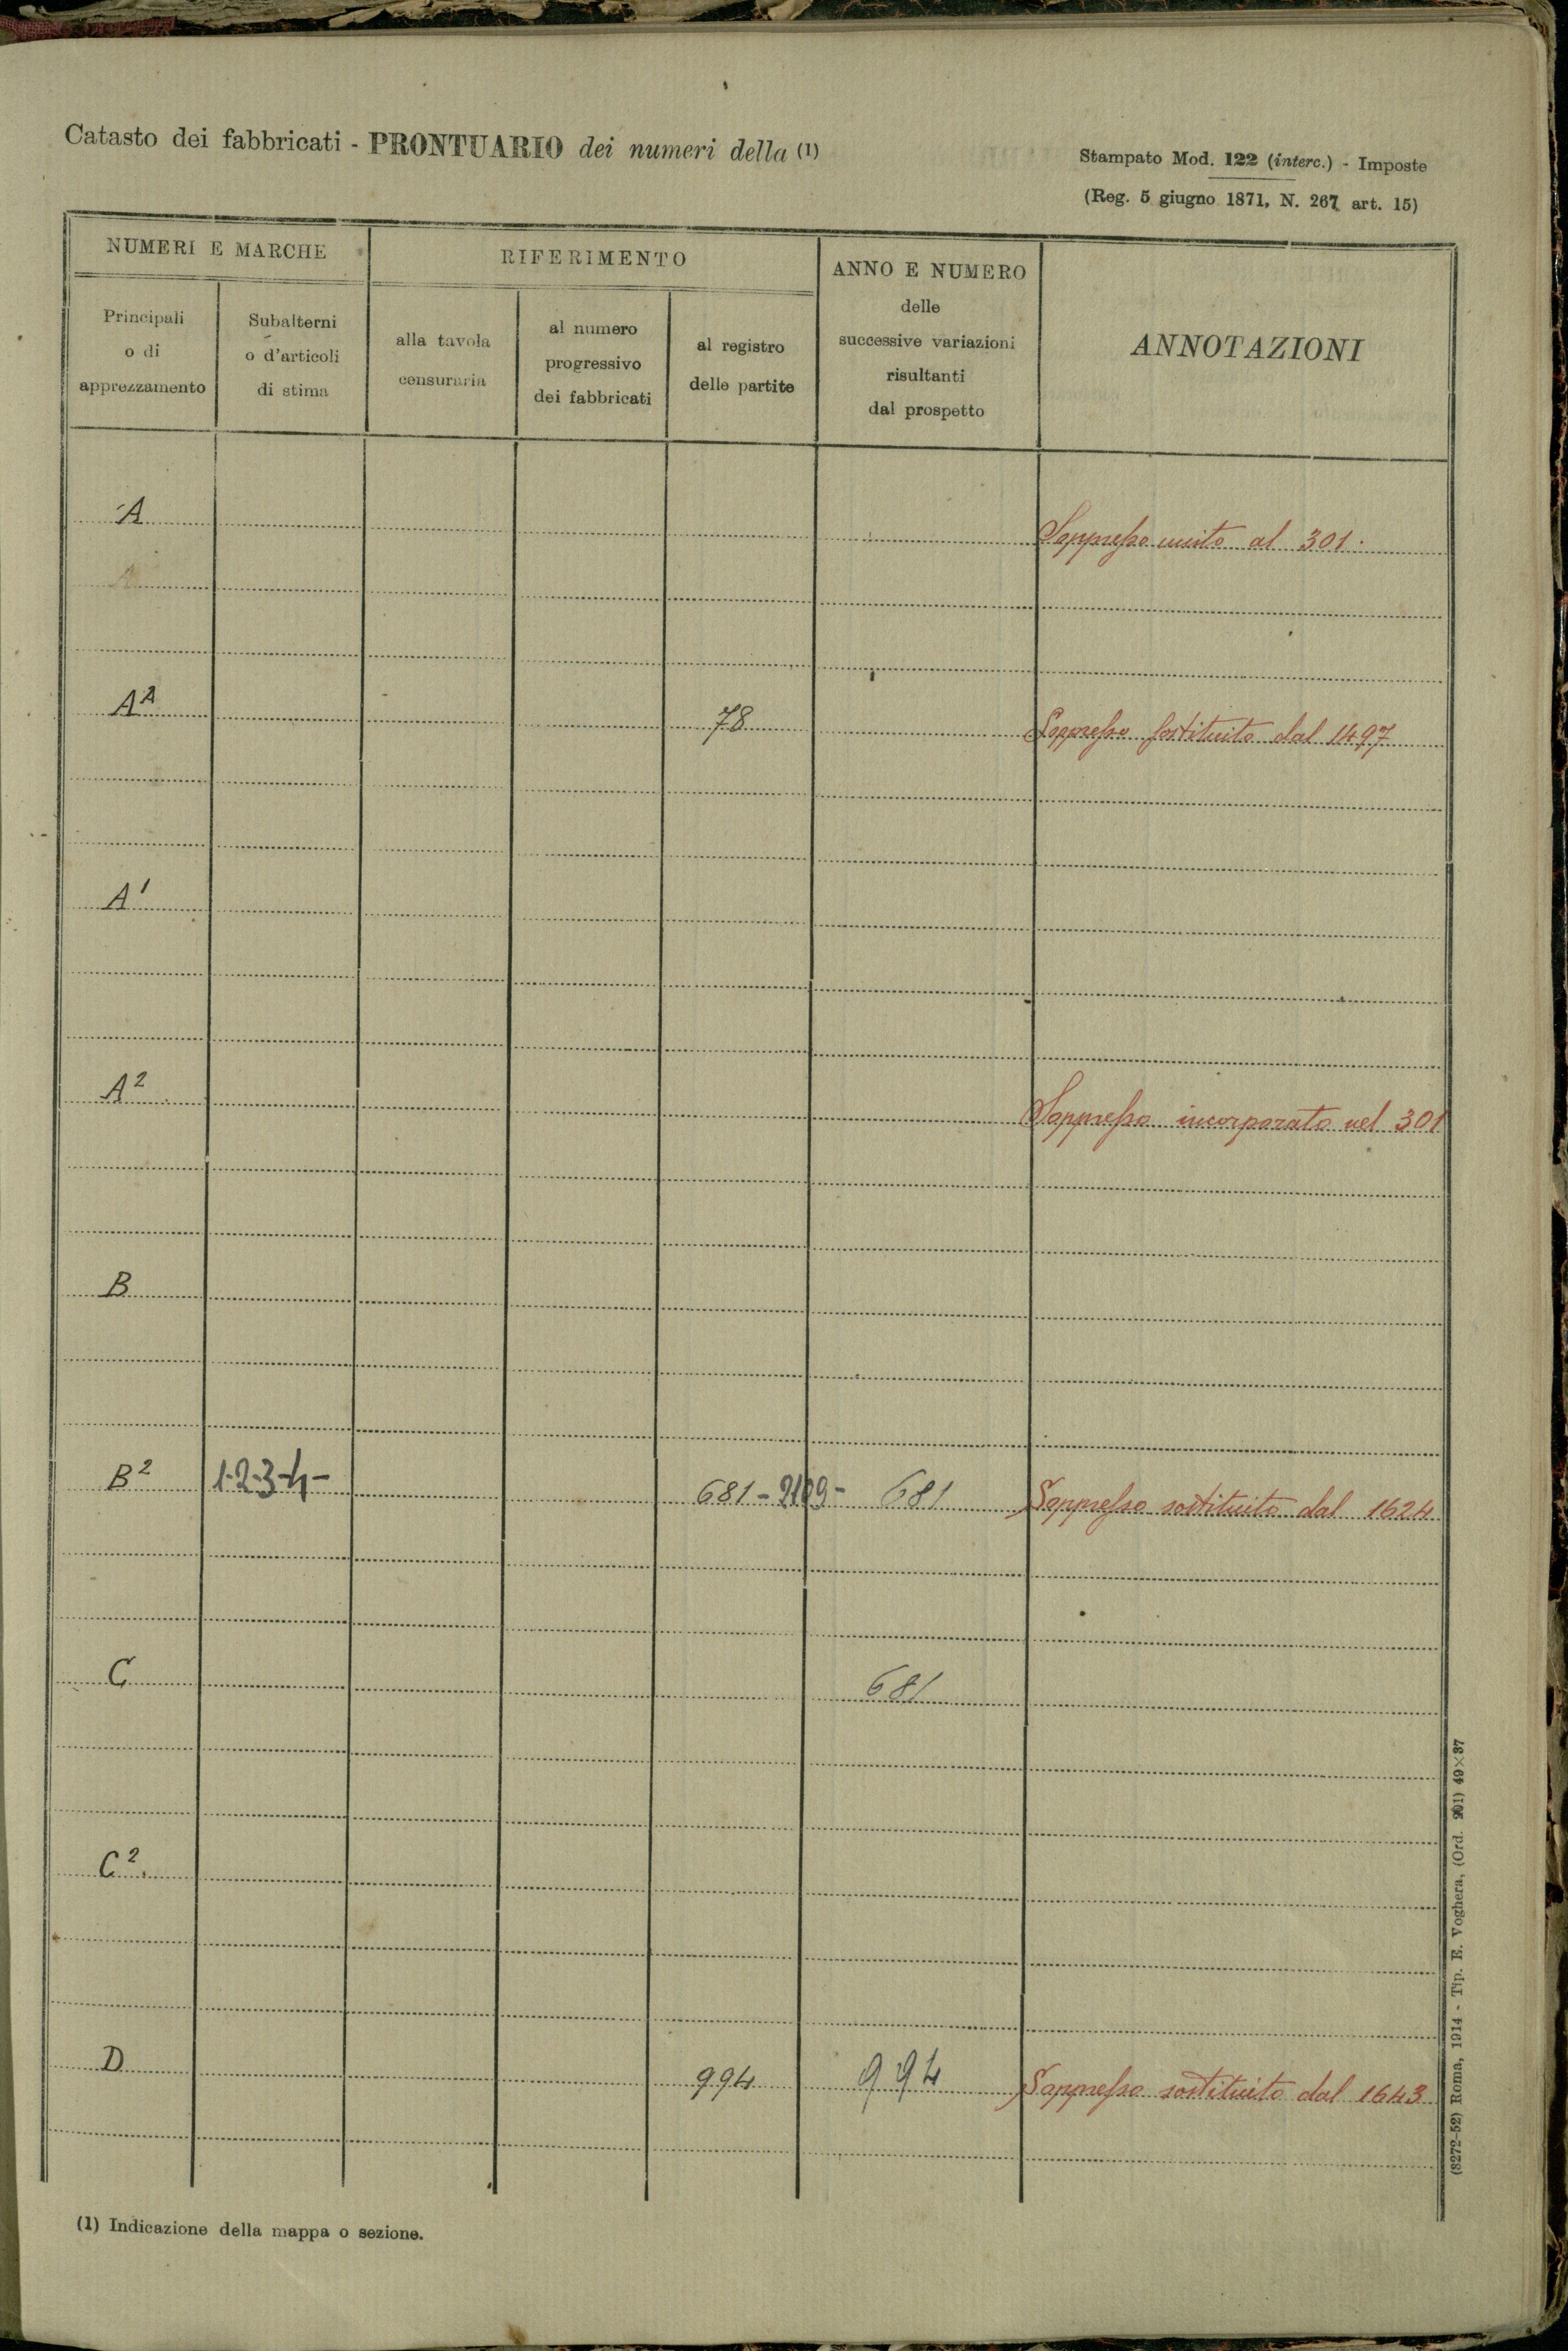 Catasto dei fabbricati - PRONTUARIO dei numeri della (1)
Stampato Mod. 122 (interc.) - Imposte
(Reg. 5 giugno 1871, N. 267 art. 15)
NUMERI E MARCHE
RIFERIMENTO
ANNO E NUMERO
delle
successive variazioni
risultanti
dal prospetto
ANNOTAZIONI
Principali
o di
apprezzamento
Subalterni
o d'articoli
di stima
alla tavola
censuraria
al numero
progressivo
dei fabbricati
al registro
delle partite
A Soppresso unito al 301.
A
A² 78 Soppresso sostituito dal 1497
A¹
A² Soppresso incorporato nel 301
B
B² 1-2-3-4- 681-2109- 681 Soppresso sostituito dal 1624
C 681
C².
D 994 994 Soppresso sostituito dal 1643
(1) Indicazione della mappa o sezione.
(8272-52) Roma, 1914 - Tip. E. Voghera, (Ord. 201) 49×37